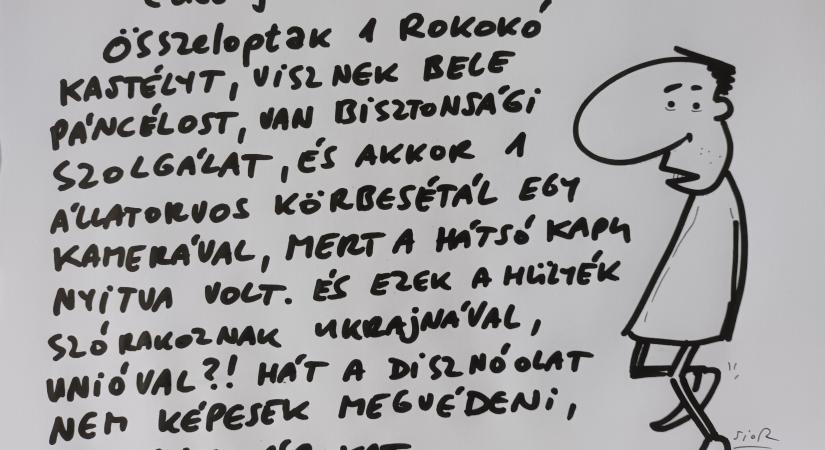 ÖSSZELOPTAK 1 ROKOKÓ
KASTÉLYT, VISZNEK BELE
PÁNCÉLOST, VAN BISZTONSÁGI
SZOLGÁLAT, ÉS AKKOR 1
ÁLLATORVOS KÖRBESÉTÁL EGY
KAMERÁVAL, MERT A HÁTSÓ KAPU
NYITVA VOLT. ÉS EZEK A HÜLYÉK
SZÓRAKOZNAK UKRAJNÁVAL,
UNIÓVAL?! HÁT A DISZNÓÓLAT
NEM KÉPESEK MEGVÉDENI,
SIOR